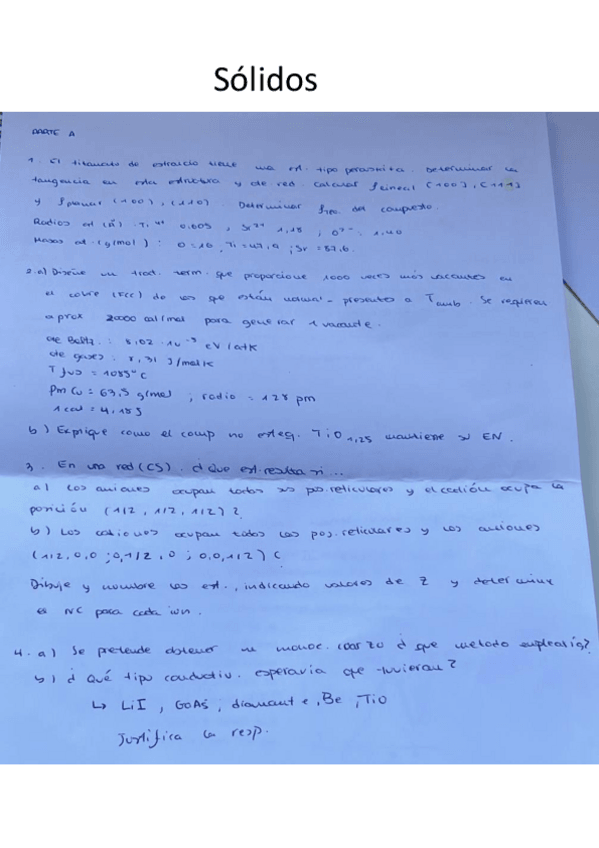 Sólidos
PARTE A
1. El titanato de estroncio tiene una est. tipo perovskita. Determinar la
tangencia en esta estructura y de red. Calcular ρ lineal (100), (111)
y ρ planar (100), (110). Determinar ρ teo. del compuesto.
Radios at (Å): Ti⁴⁺ 0,605, Sr²⁺ 1,18, O²⁻: 1,40
Masas at. (g/mol): O=16, Ti=47,9; Sr=87,6.
2.a) Diseñe un trat. term. que proporcione 1000 veces más vacantes en
el cobre (FCC) de las que están normal. presentes a Tamb. Se requieren
aprox 20000 cal/mol para generar 1 vacante.
de Boltz.: 8,62·10⁻⁵ eV/atK
de gases: 8,31 J/molK
T fus = 1085°C
Pm Cu = 63,5 g/mol; radio = 128 pm
1 cal = 4,18 J
b) Explique como el comp no esteq. TiO 1,25 mantiene su EN.
3. En una red (CS). ¿Que est. resulta si...
a) Los aniones ocupan todas sus pos. reticulares y el catión ocupa la
posición (1/2, 1/2, 1/2)?
b) Los cationes ocupan todas las pos. reticulares y los aniones
(1/2,0,0; 0,1/2,0; 0,0,1/2)
Dibuje y nombre las est., indicando valores de Z y determine
el NC para cada ion.
4. a) Se pretende obtener un monoc. cuarzo ¿que metodo emplearías?
b) ¿Qué tipo conductiv. esperaría que tuvieran?
↳ LiI, GaAs, diamante, Be, TiO
Justifica la resp.